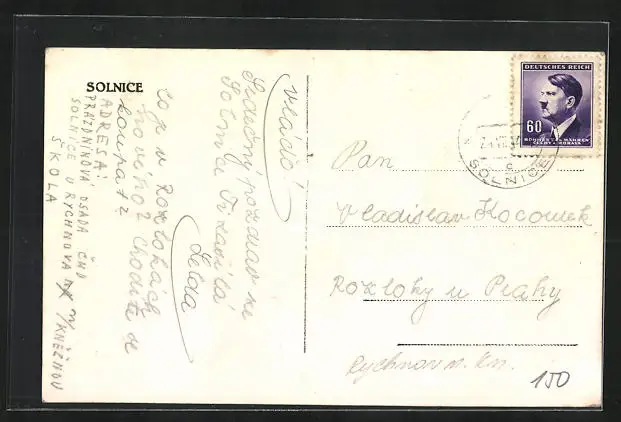 SOLNICE
Vláďo!
Srdečný pozdrav ze
Solnice Ti zasílá
Zelda
Co je v Roztokách
nového? Chodíte se
koupat?
ADRESA:
PRÁZDNINOVÁ OSADA ČND
SOLNICE U RYCHNOVA N/KNĚŽNOU
ŠKOLA
DEUTSCHES REICH
60
BÖHMEN U. MÄHREN
ČECHY A MORAVA
SOLNICE
c
Pan
Vladislav Kocourek
Roztoky u Prahy
Rychnov n. Kn.
150